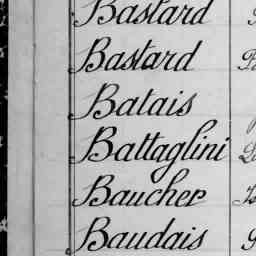 Bastard
Bastard
Batais
Battaglini
Baucher
Baudais